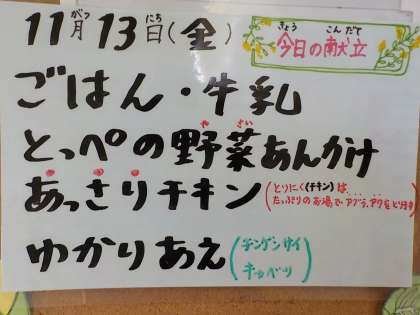 11月13日(金)
がつ にち
きょう こんだて
今日の献立
ごはん・牛乳
とっぺの野菜あんかけ
やさい
あっさりチキン
(とりにく(チキン)は、
たっぷりのお湯でアブラ、アクをとります)
ゆかりあえ
(チンゲンサイ
キャベツ)